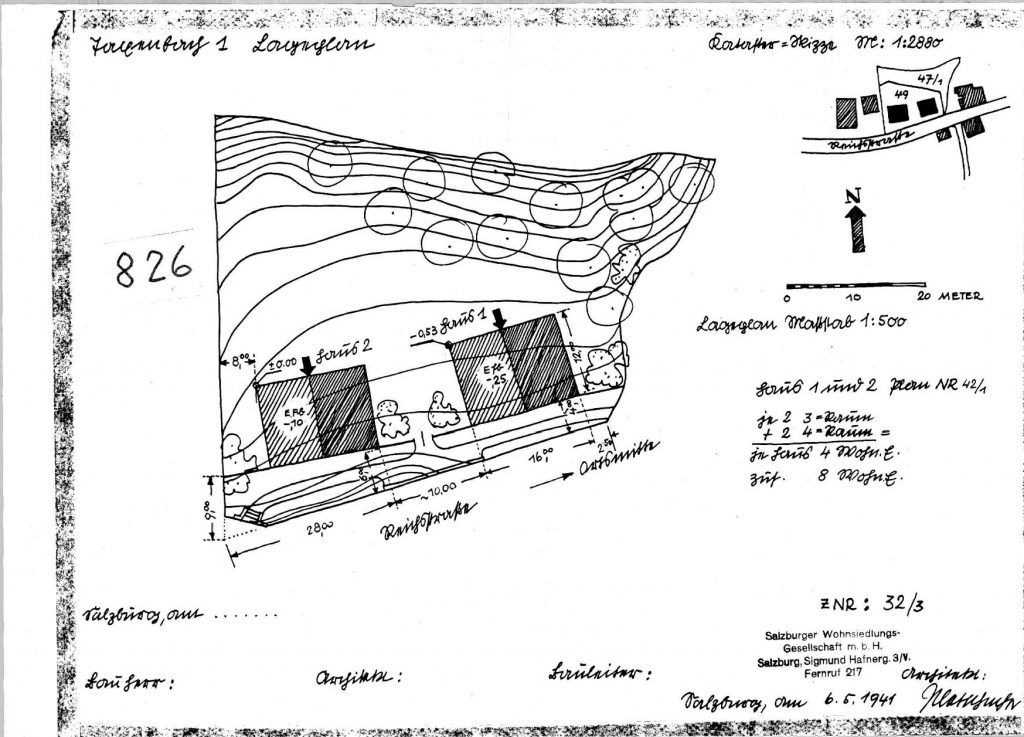 Taxenbach 1 Lageplan
Kataster=Skizze M: 1:2880
47/1
49
Reichsstraße
N
826
0 10 20 METER
Lageplan Maßstab 1:500
-0,53 Haus 1
8,00
±0.00 Haus 2
E.Fb.
-,10
E.Fb.
-,25
12,00
Haus 1 und 2 Plan NR 42/1
je 2 3=Raum
+ 2 4=Raum =
je Haus 4 Wohn.E.
zus. 8 Wohn.E.
9,00
6,00
2,50
16,00
Ortsmitte
~10,00
28,00
Reichsstraße
Salzburg, am .......
ZNR: 32/3
Salzburger Wohnsiedlungs-
Gesellschaft m. b. H.
Salzburg, Sigmund Hafnerg. 3/V.
Fernruf 217
Bauherr:
Architekt:
Bauleiter:
Architekt:
Salzburg, am 6.5.1941